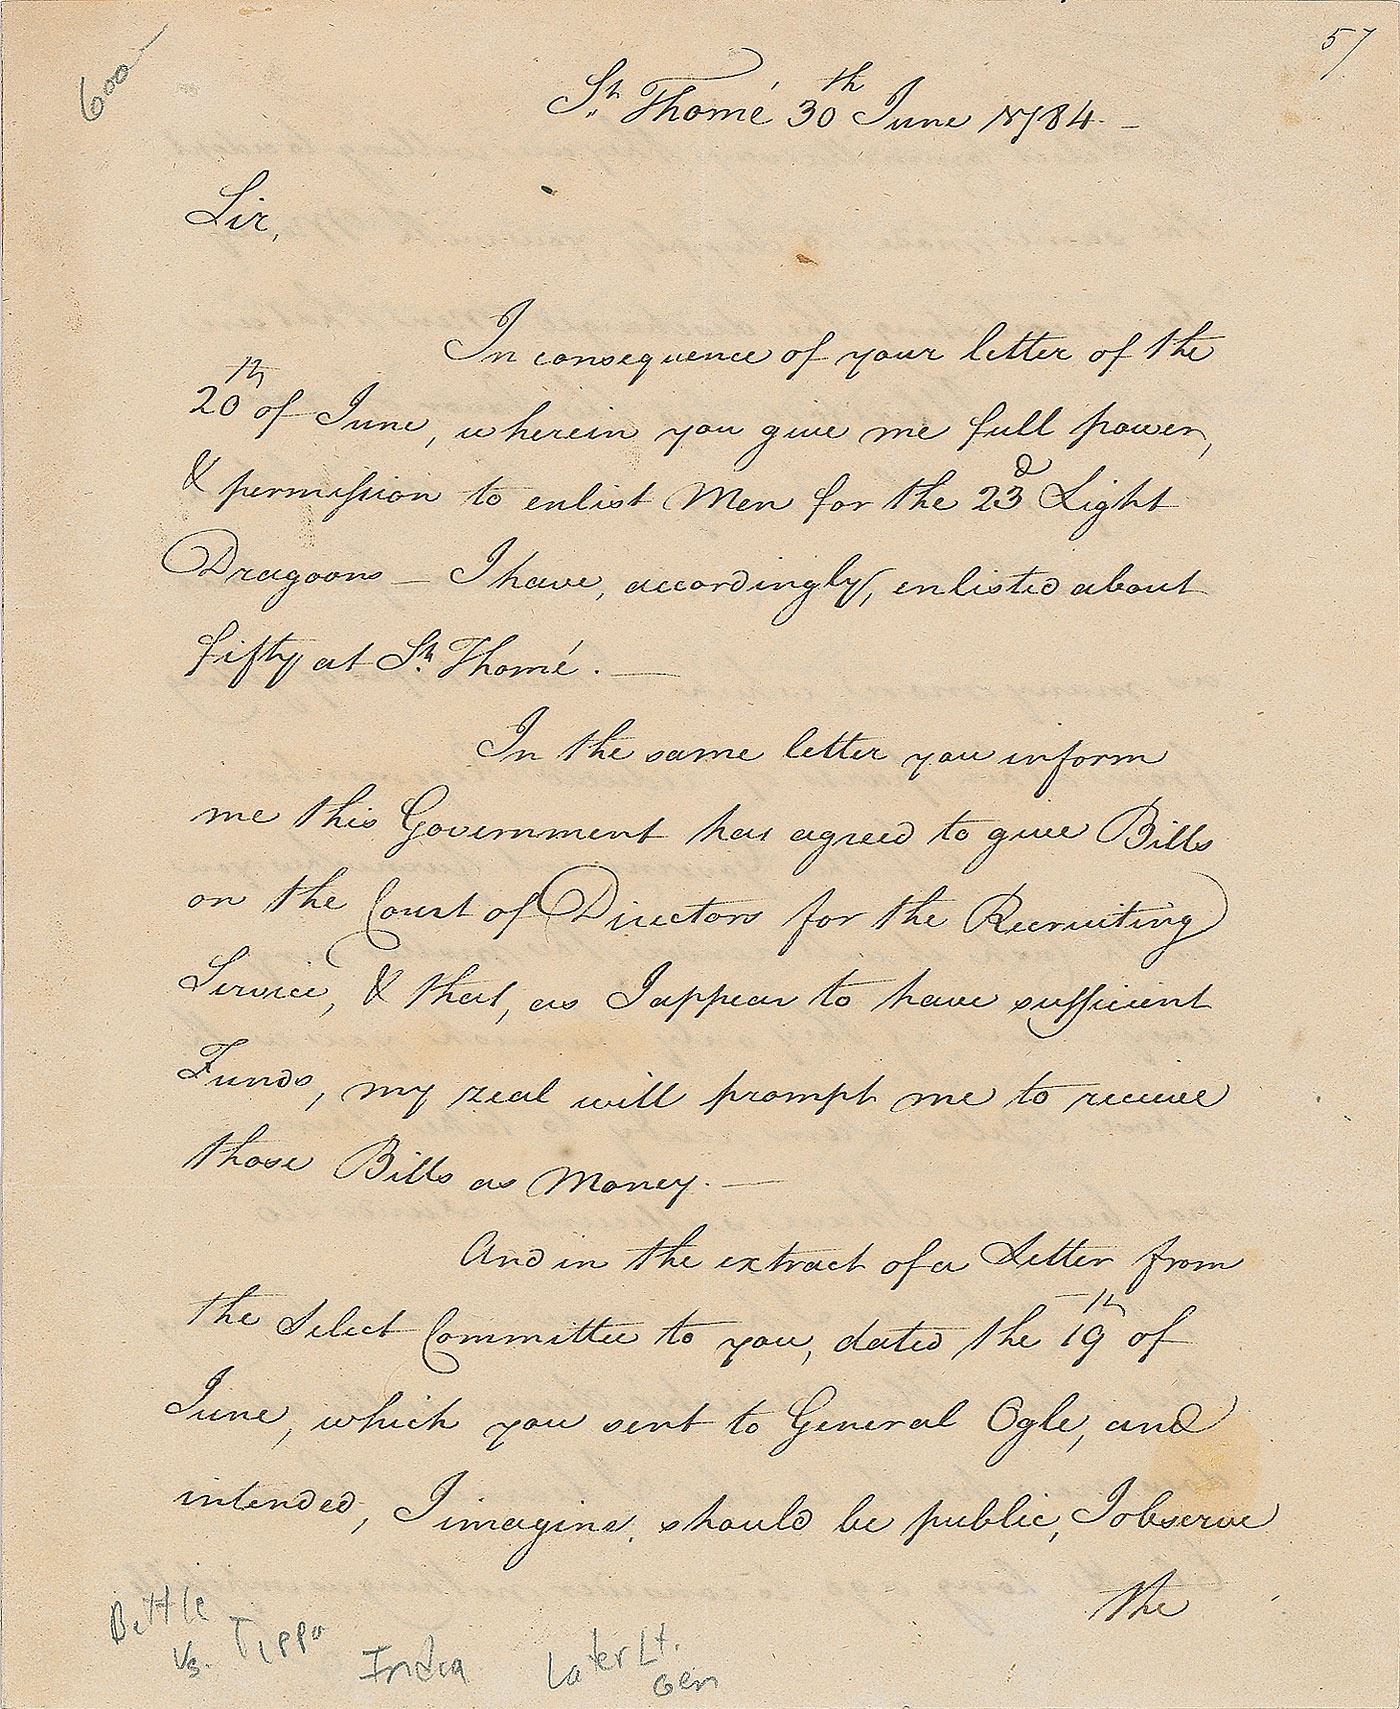 600
57
St. Thomé 30th June 1784. –
Sir,
In consequence of your letter of the
20th of June, wherein you give me full power,
& permission to enlist Men for the 23d Light
Dragoons – I have, accordingly, enlisted about
fifty at St. Thomé. —
In the same letter you inform
me this Government has agreed to give Bills
on the Court of Directors for the Recruiting
Service, & that, as I appear to have sufficient
Funds, my zeal will prompt me to receive
those Bills as Money. —
And in the extract of a Letter from
the Select Committee to you, dated the 19th of
June, which you sent to General Ogle, and
intended, I imagine, should be public, I observe
the
Battle
vs. Tippo
India
Later Lt.
Gen